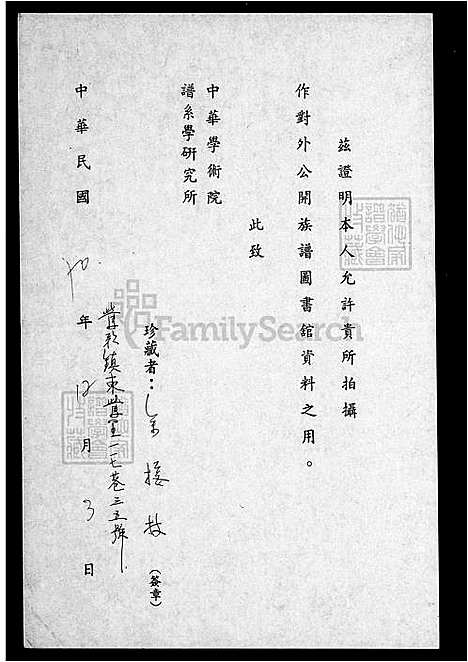 茲證明本人允許貴所拍攝
作對外公開族譜圖書館資料之用。
此致
中華學術院
譜系學研究所
珍藏者：余接枝（簽章）
鎮東里一一七巷三五號
中華民國70年12月3日
FamilySearch